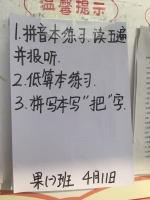 温馨提示
1.拼音本练习.读五遍
并报听.
2.低算本练习.
3.拼写本写"把"字.
果(一)班 4月11日